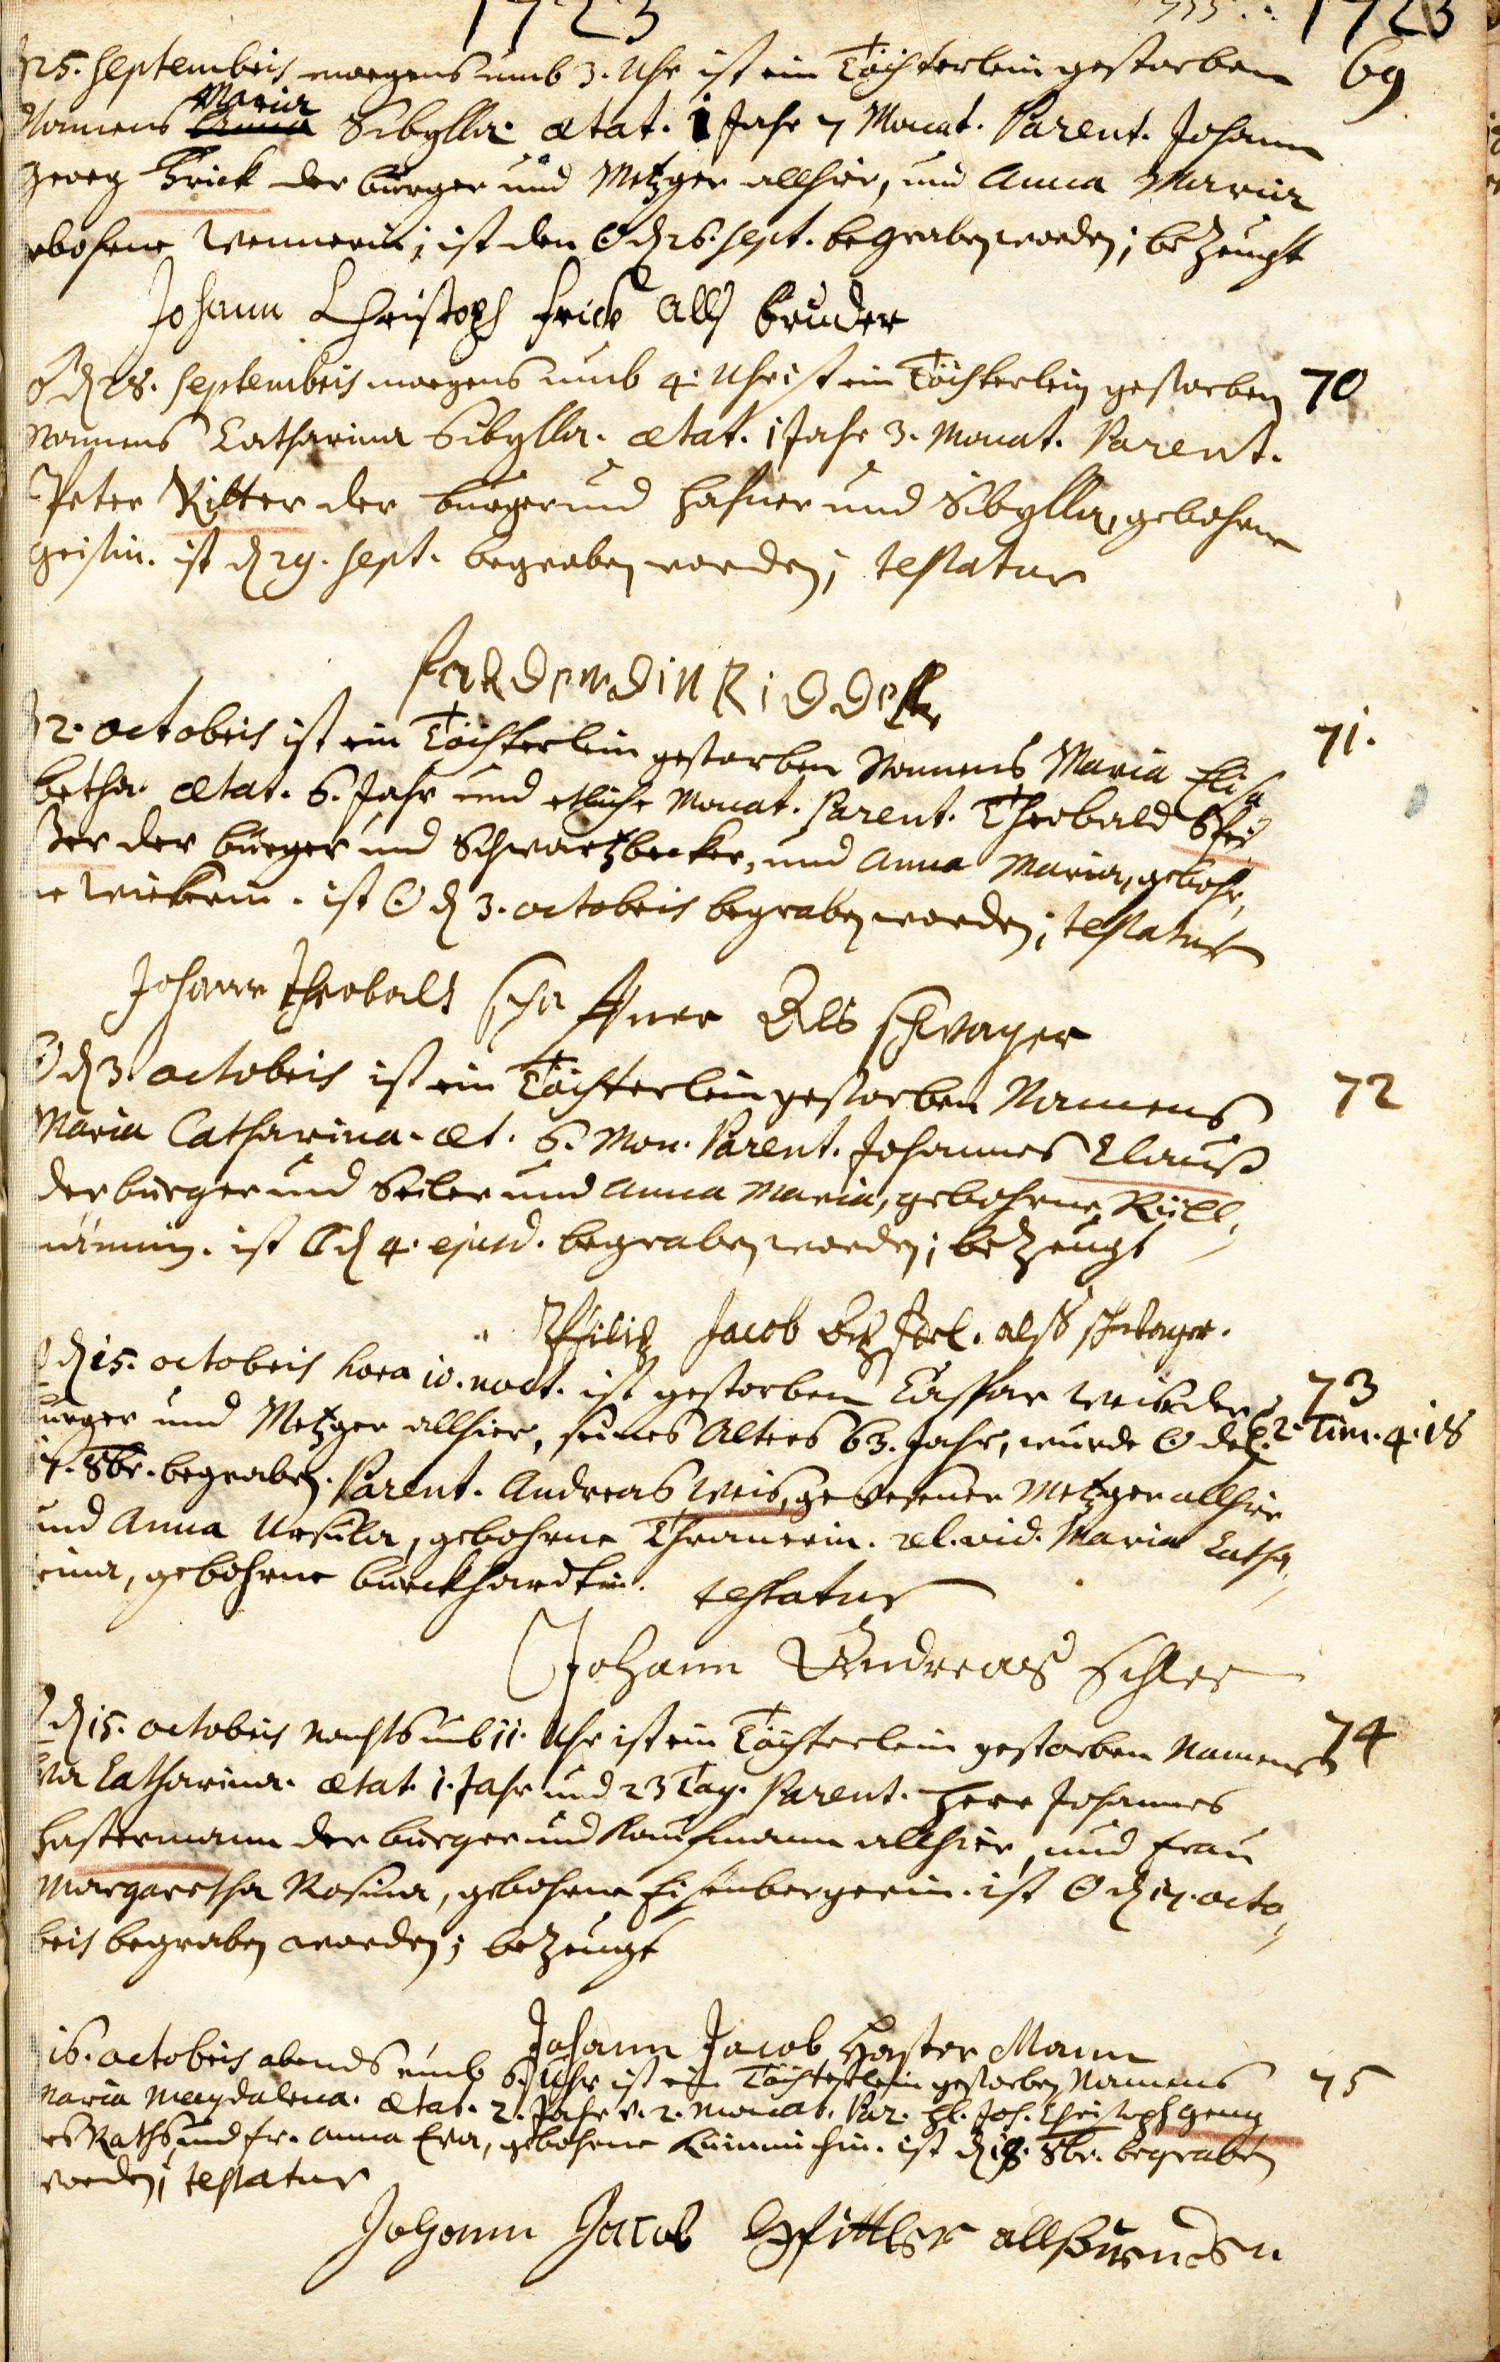 1723 1723
25. Septembris morgens umb 3. Uhr ist ein Töchterlein gestorben 69
Nahmens Anna Maria Sibylla. ætat. 1 Jahr 7 Monat. Parent. Johann
Georg Frick der burger und Metzger allhier, und Anna Maria
gebohrne ; ist den 26. Sept. begraben worden; bezeugt
Johann Christoph frick alls bruder
28. Septembris morgens umb 4. Uhr ist ein Töchterlein gestorben 70
Nahmens Catharina Sibylla. ætat. 1 Jahr 3. Monat. Parent.
Peter Ritter der burger und hafner und Sibylla, gebohrne
Geistin. ist d 29. Sept. begraben worden; testatur
2. octobris ist ein Töchterlein gestorben Nahmens Maria Elisa 71.
betha. ætat. 6. Jahr und etliche Monat. Parent. Theobald
der burger und Schwartzbecker, und Anna Maria, gebohr,
ne . ist d 3. octobris begraben worden; testatur
Johann Theobalt schaffner Als schwager
d 3. octobris ist ein Töchterlein gestorben Nahmens 72
Maria Catharina. æt. 6. Mon. Parent. Johannes Clauß
der burger und Seiler und Anna Maria, gebohrne
. ist d 4. ejusd. begraben worden; bezeugt
Philip Jacob alß schwager.
d 15. octobris hora 10. noct. ist gestorben Caspar Weis der 73
burger und Metzger allhier, seines Alters 63. Jahr, wurde 2. Tim. 4. 18
17. 8br. begraben. Parent. Andreas Weis, gewesener Metzger allhier
und Anna Ursula, gebohrne . rel. vid. Maria Catha,
rina, gebohrne burckhardtin. testatur
Johann Andreas
d 15. octobris Nachts umb 11. Uhr ist ein Töchterlein gestorben Nahmens 74
Eva Catharina. ætat. 1. Jahr und 23 Tag. Parent. Herr Johannes
Hastermann der burger und Kauffmann allhier, und Frau
Margaretha Rosina, gebohrne Eisenbergerin. ist d 17. octo,
bris begraben worden; bezeugt
Johann Jacob Haster Mann
16. octobris abends umb 6. Uhr ist ein Töchterlein gestorben Nahmens 75
Maria Magdalena. ætat. 2. Jahr u. 2. Monat. Par. H. Joh. Christoph
des Raths und fr. Anna Eva, gebohrne . ist d 18. 8br. begraben
worden; testatur
Johann Jacob